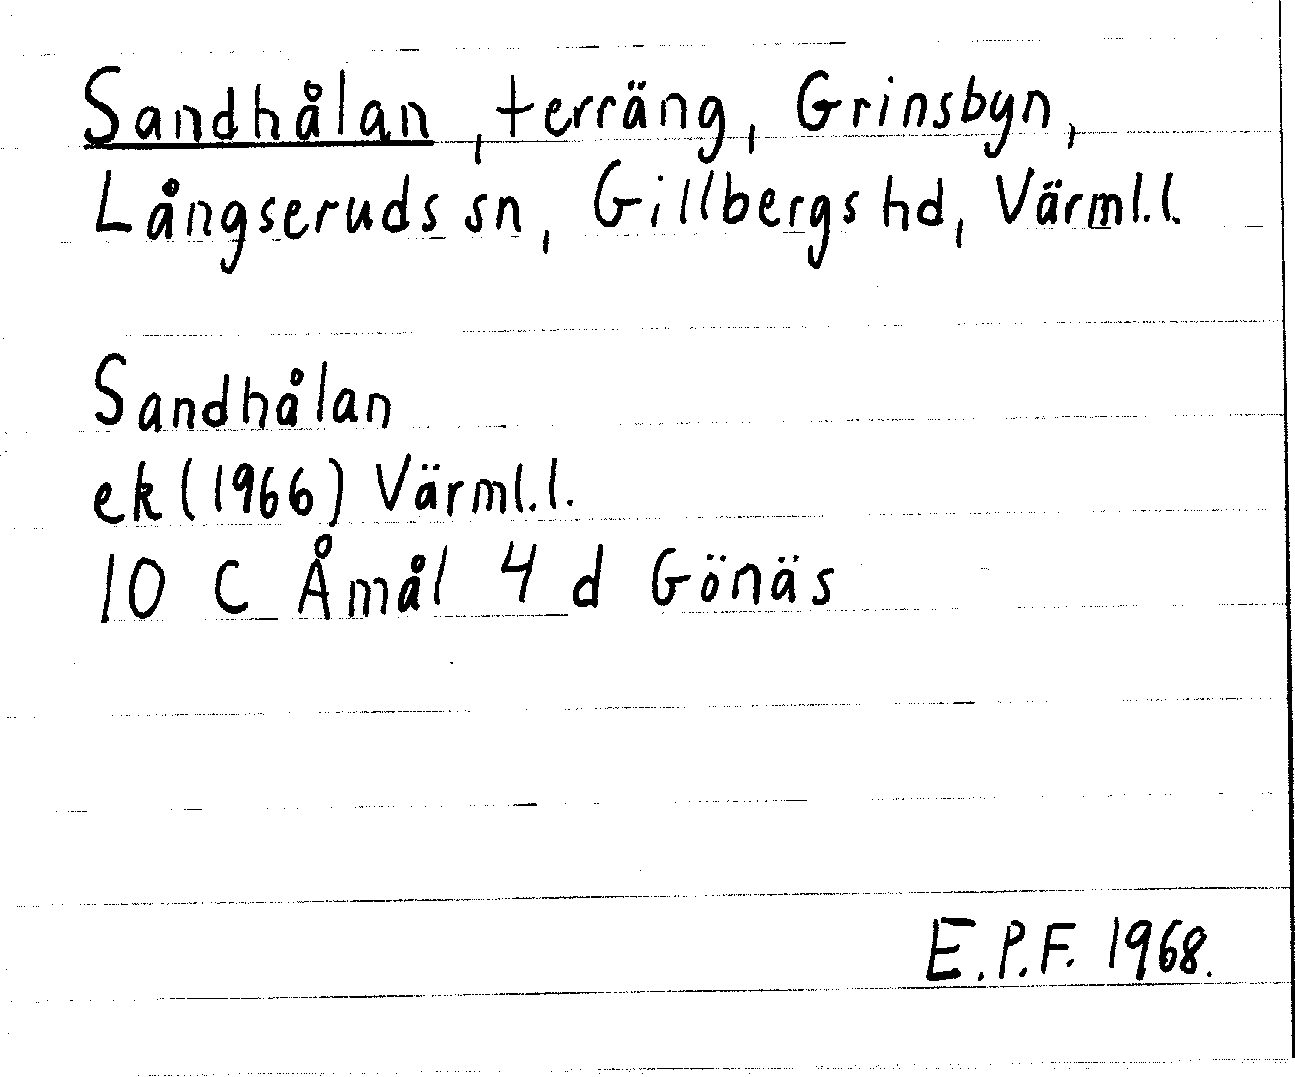 Sandhålan, terräng, Grinsbyn,
Långseruds sn, Gillbergs hd, Värml.l.
Sandhålan
ek (1966) Värml.l.
10 C Åmål 4 d Gönäs
E.P.F. 1968.